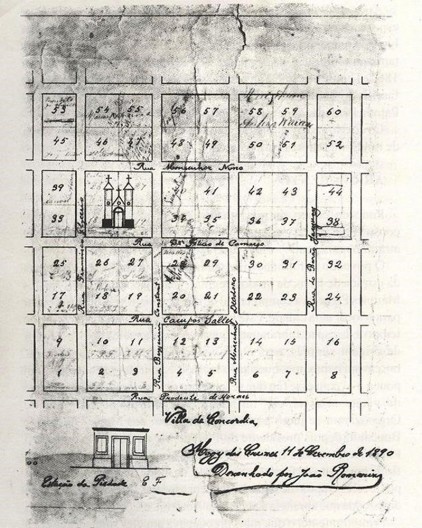 53 54 55 56 57 58 59 60
45 46 47 48 49 50 51 52
Rua Monsenhor Nono
39 41 42 43 44
33 35 36 37 38
Rua Dr. de Camargo
25 26 27 28 29 30 31 32
17 18 19 20 21 22 23 24
Rua Campos Salles
9 10 11 12 13 14 15 16
1 2 3 4 5 6 7 8
Rua Prudente de Moraes
Rua Glycerio
Rua Benjamin Constant
Rua Marechal Deodoro
Rua do Barão Jaguary
Villa de Concordia
Mogy das Cruzes 11 de Dezembro de 1890
Desenhado por João
Estação da Piedade E F.